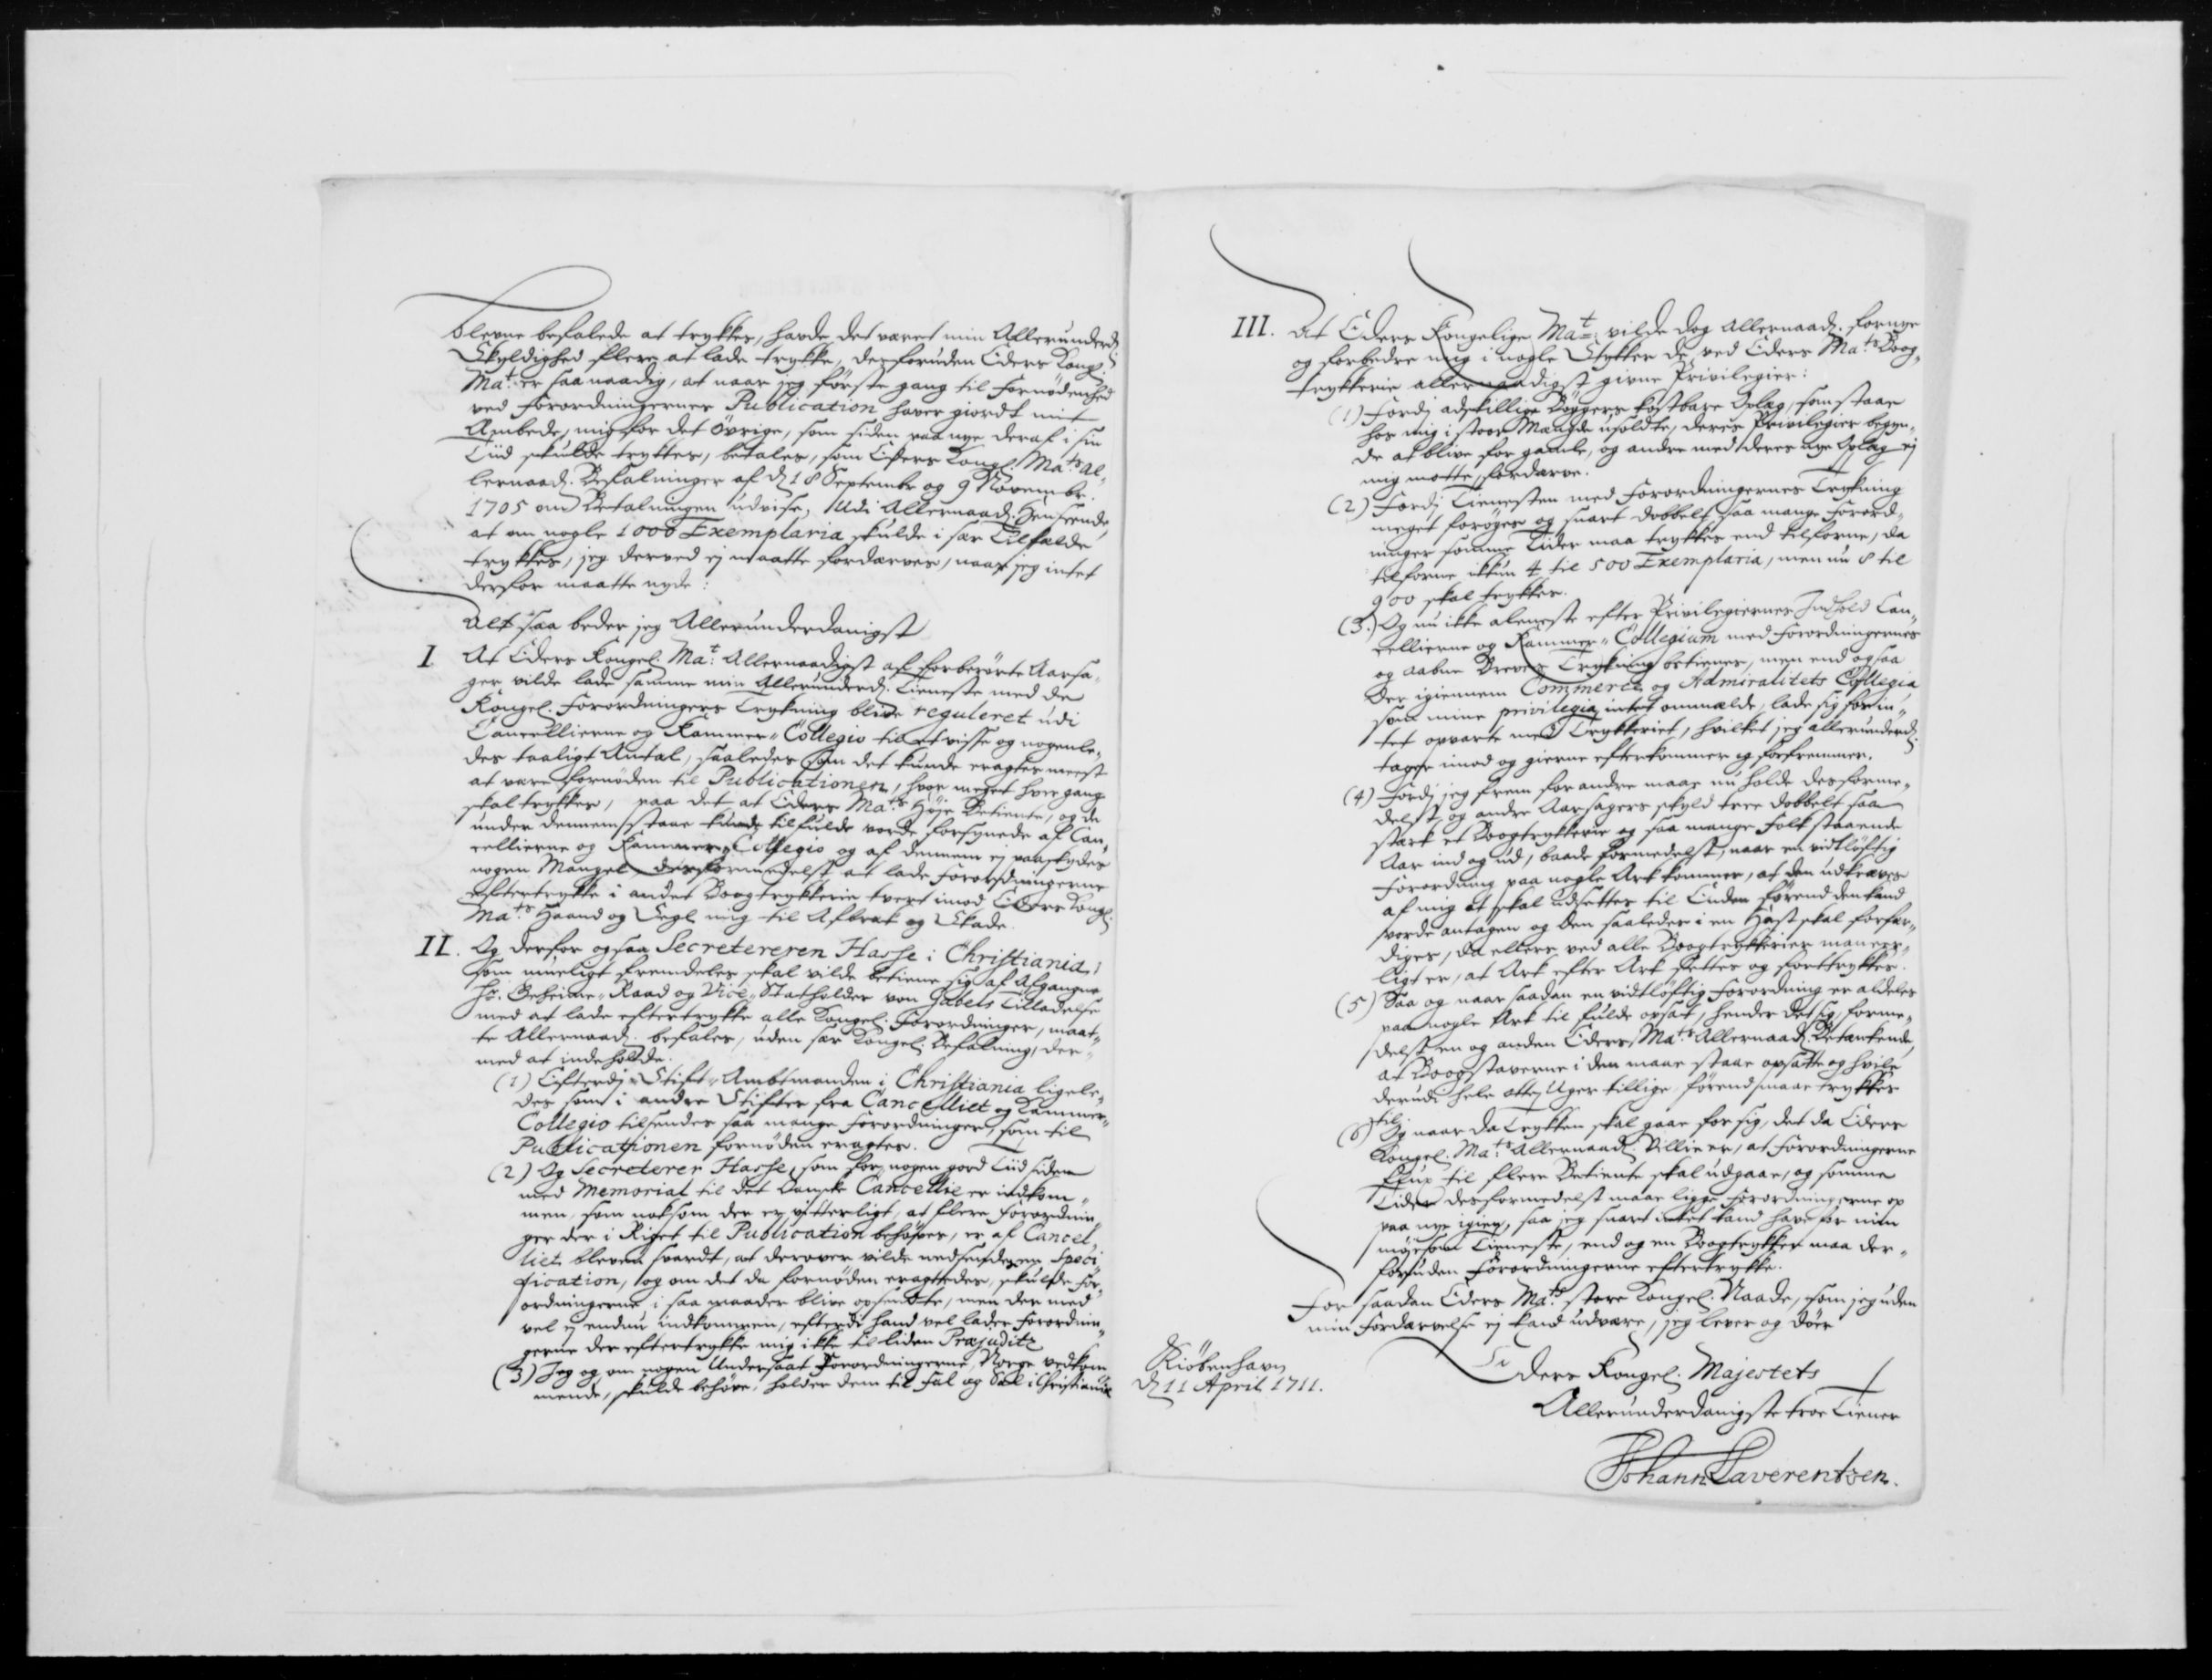 blevne befalede at trykkes, havde det været min Allerunderd:
Skyldighed flere at lade trykke, desforuden Eders Kongl:
Mat: er saa naadig, at naar jeg første gang til Fornødenhed
ved Forordningernes Publication haver giordt mit
Embede, mig for det Øvrige, som siden paa nye deraf i sin
Tiid skulde trykkes, betales, som Eders Kongl. Mats al-
lernaad. Befalninger af d. 18 Septembr og 9 Novembr.
1705 om Betalningen udviser, Udi Allernaad. Henseende,
at om nogle 1000 Exemplaria skulde i sær Tilfælde
trykkes, jeg derved ej maatte fordærves, naar jeg intet
derfor maatte nyde:
Alt saa beder jeg Allerunderdanigst
I At Eders Kongel. Mat: Allernaadigst af forberørte Aarsa-
ger vilde lade samme min Allerunderd. Tieneste med de
Kongel. Forordningers Trykning blive reguleret udi
Cancellierne og Kammer-Collegio til et visse og nogenle-
des taaligt Antal, saaledes som det kunde eragtes meest
at være fornøden til Publicationen, hvor meget hver gang
skal trykkes, paa det at Eders Mats Høye Betiente, og de
under dennem staar kunde tilfulde vorde forsynede af Can-
cellierne og Kammer-Collegio og af dennem ej paaskydes
nogen Mangel, desformedelst at lade Forordningerne
eftertrykke i andet Boogtrykkerie tvert imod Eders Kongl.
Mats Haand og Segl mig til Afbrek og Skade.
II. Og derfor ogsaa Secretereren Hasse i Christiania,
som mueligt fremdeles skal vilde betiene sig af Afgangne
Hr. Geheime-Raad og Vice-Statholder von Gabels Tilladelse
med at lade eftertrykke alle Kongel. Forordninger, maat-
te Allernaad. befales, uden sær Kongel. Befalning, der-
med at indeholde.
(1) Efterdj Stift-Ambtmanden i Christiania ligele-
des som i andre Stifter fra Cancelliet og Kammer-
Collegio tilsendes saa mange Forordninger, som til
Publicationen fornøden eragtes.
(2) Og Secreterer Hasse, som for nogen goed Tiid siden
med Memorial til det Danske Cancellie er indkom-
men, som noksom der er vitterligt, at flere Forordnin-
ger der i Riget til Publication behøves, er af Cancel-
liet bleven svardt, at derover vilde nedsendes en Speci-
fication, og om det da fornøden eragtedes, skulde For-
ordningerne i saa maader blive opsendte, men der med
vel ej endnu indkommen, efterdi hand vel lader Forordnin-
gerne der eftertrykke mig ikke til liden Præjuditz
(3) Jeg og, om nogen Undersaat Forordningerne, Norge vedkom-
mende, skulde behøve, holder dem til fal og Sal i Christiania
III. At Eders Kongelige Mat: vilde dog Allernaad. fornye
og forbedre mig i nogle Stykker de ved Eders Mats Boog-
trykkerie allernaadigst givne Privilegier:
(1) Fordj adskillige Bøggers kostbare Oplag, som staar
hos mig i stoor Mængde usoldte, deres Privilegier begyn-
de at blive for gamle, og andre med deres nye Oplag ej
mig maatte fordærve.
(2) Fordj Tienesten med Forordningernes Trykning
meget forøges og snart dobbelt saa mange Forord-
ninger somme Tider maa trykkes end tilforne, da
tilforne ikkun 4 til 500 Exemplaria, men nu 8 til
900 skal trykkes.
(3.) Og nu ikke aleneste efter Privilegiernes Indhold Can-
cellierne og Kammer-Collegium med Forordningernes
og aabne Breves Trykning betienes, men end ogsaa
der igiennem Commerce og Admiralitets Collegia
som mine privilegia intet ommælde, lade sig for in-
tet opvarte med Trykkeriet, hvilket jeg allerunderd.
tager imod og gierne efterkommer og forfremmer.
(4) Fordj jeg frem for andre maae nu holde desforme-
delst og andre Aarsagers skyld tree dobbelt saa
stærk et Boogtrykkerie og saa mange Folk staaende
Aar ind og ud, baade formedelst, naar en vidtløftig
Forordning paa nogle Ark kommer, at den udkræves
af mig at skal udsettes til Enden førend den kand
vorde antagen og den saaledes i en Hast skal forfær-
diges, da ellers ved alle Boogtrykkerier maneer-
ligt er, at Ark efter Ark settes og forttrykkes.
(5) Saa og naar saadan en vidtløftig Forordning er aldeles
paa nogle Ark til fulde opsat, hender det sig, forme-
delst en og anden Eders Mats Allernaad. Betænkende,
at Boogstaverne i den maae staae opsatte og hvile
derudi hele otte Uger tillige, førend maae trykkes
til
(6) Og naar da Trykken skal gaae for sig, det da Eders
Kongel. Mats Allernaad. Villie er, at Forordningerne
til flere Betiente skal udgaae, og somme
Tider desformedelst maae ligge Forordningerne op
paa nye igien, saa jeg snart intet kand have for min
møjsom Tieneste, end og en Boogtrykker maa der-
foruden Forordningerne eftertrykke.
For saadan Eders Mats store Kongel. Naade, som jeg uden
min Fordærvelse ej kand udvære, jeg lever og døer
Eders Kongel. Majestets
Kiøbenhavn
d. 11 April 1711.
Allerunderdanigste troe Tiener
Johann Laverentzen.